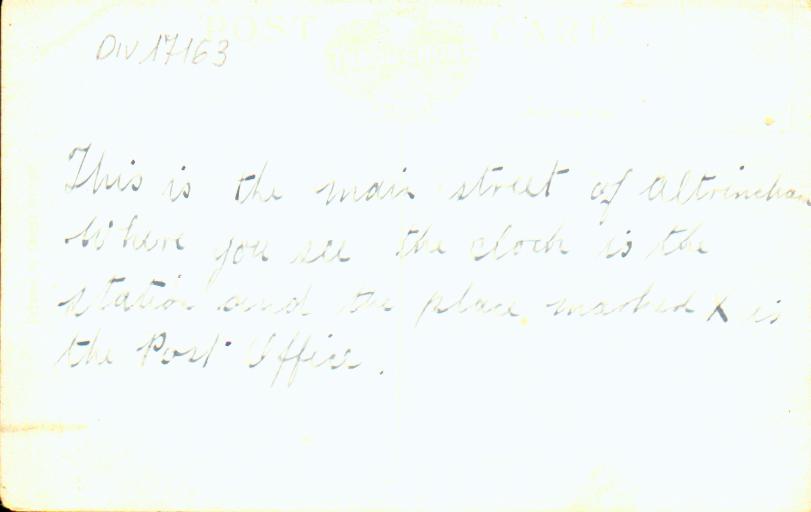 POST CARD
DIV 17163
This is the main street of Altrincham
Where you see the clock is the
station and the place marked X is
the Post Office.